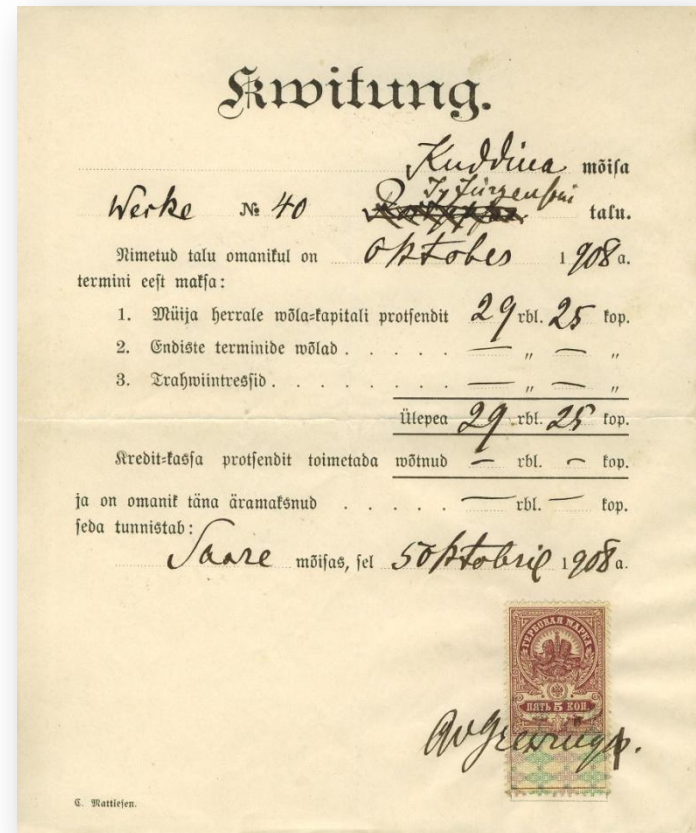 Kwitung.
Kuddina mõisa
Werke № 40 Jürgensoni talu.
Nimetud talu omanikul on oktobes 1908 a.
termini eest maksa:
1. Müija herrale wõla-kapitali protsendit 29 rbl. 25 kop.
2. Endiste terminide wõlad . . . . . — „ — „
3. Trahwiintressid . . . . . . . . — „ — „
Ülepea 29 rbl. 25 kop.
Kredit-kassa protsendit toimetada wõtnud — rbl. — kop.
ja on omanik täna äramaksnud . . . . . — rbl. — kop.
seda tunnistab:
Saare mõisas, sel 5 oktobril 1908 a.
ГЕРБОВАЯ МАРКА
ПЯТЬ 5 КОП.
C. Mattiesen.